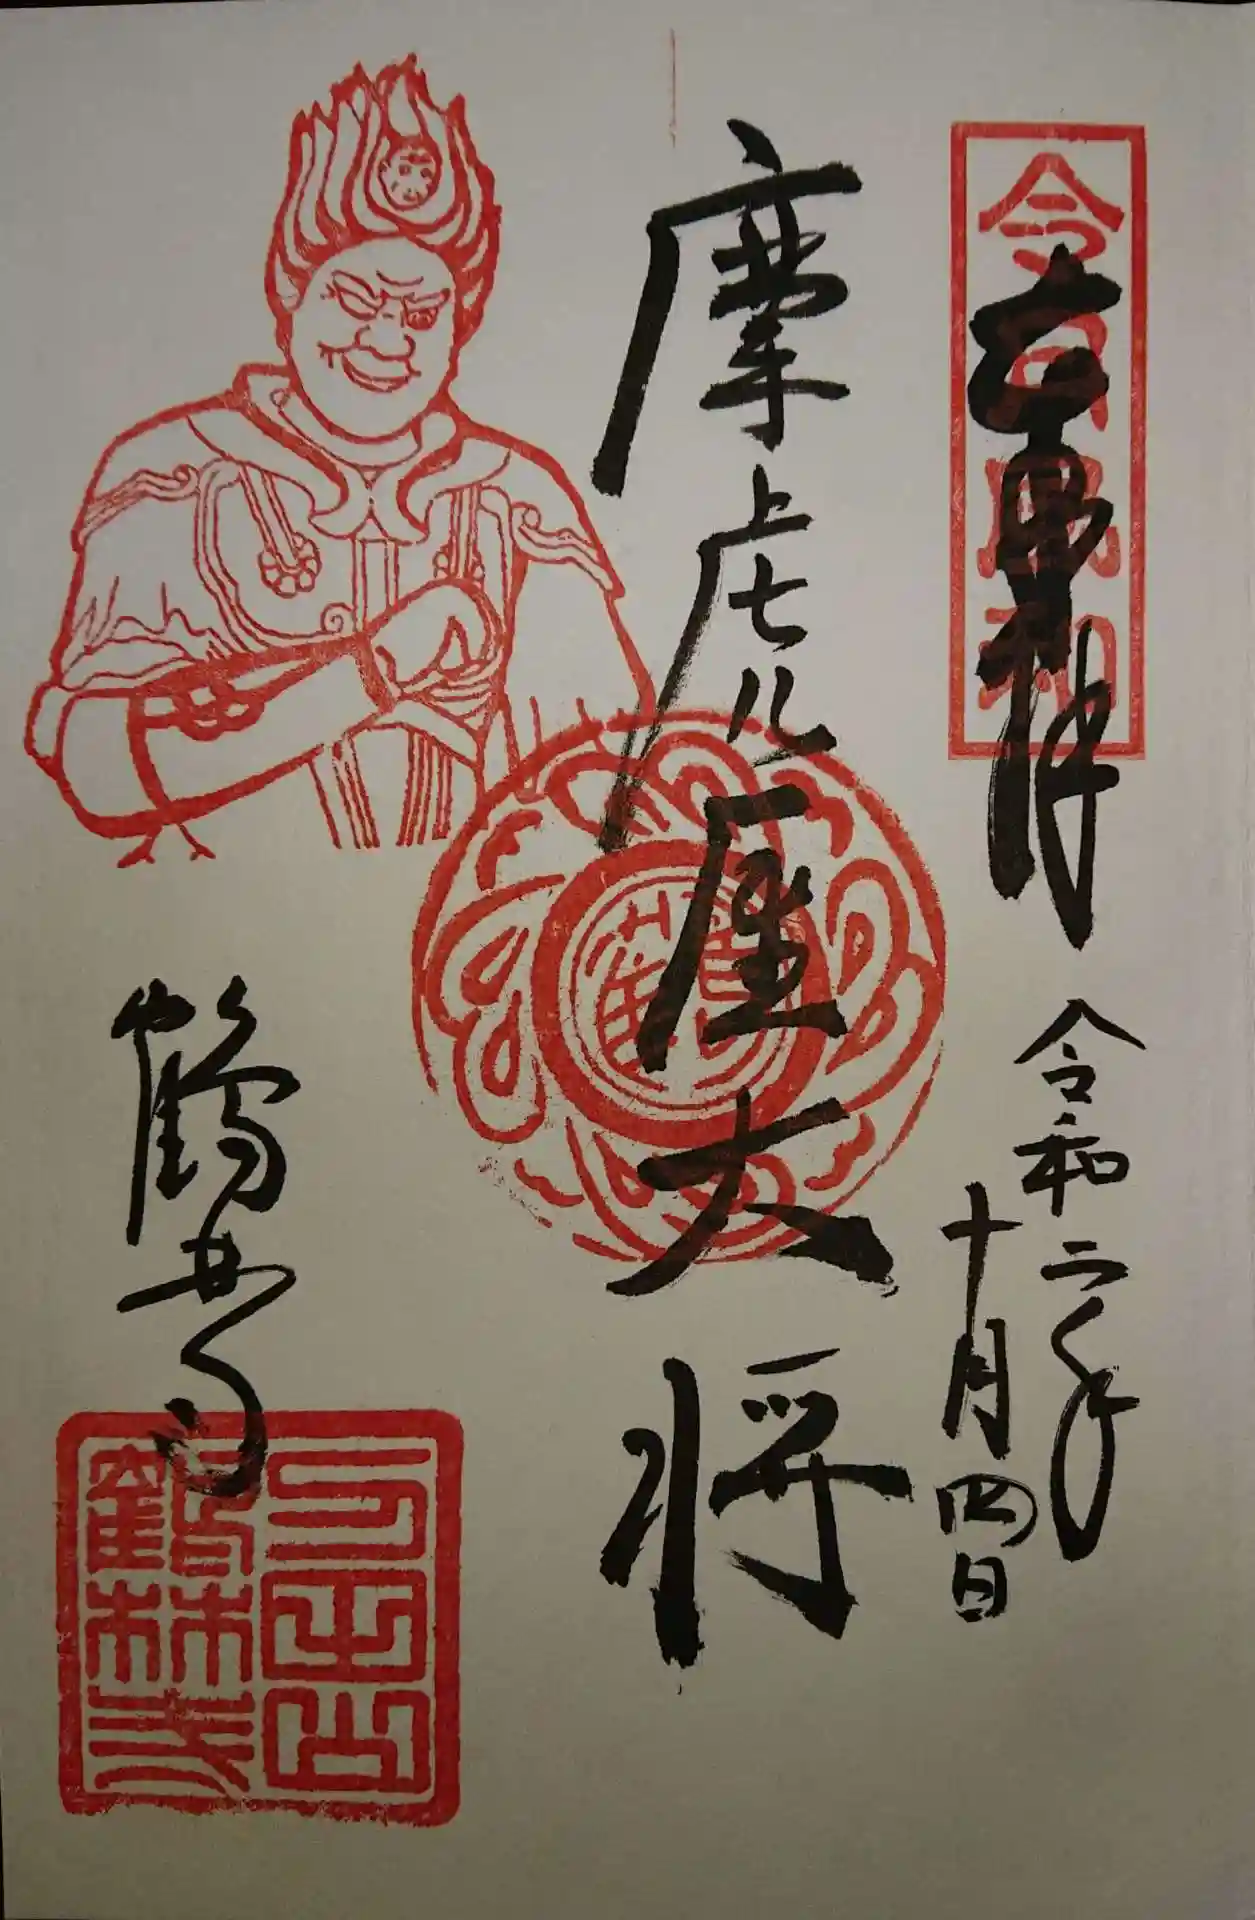 令月風和
奉拝
令和二年
十月四日
摩虎羅大将
鶴林寺
刀田山
鶴林寺